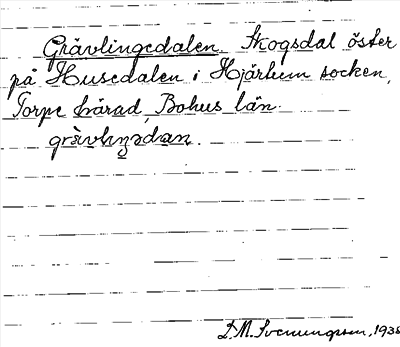 Grävlingedalen. Skogsdal öster
på Husedalen i Hjärtum socken,
Torpe härad, Bohus län.
D.M. Svenungsson, 1938